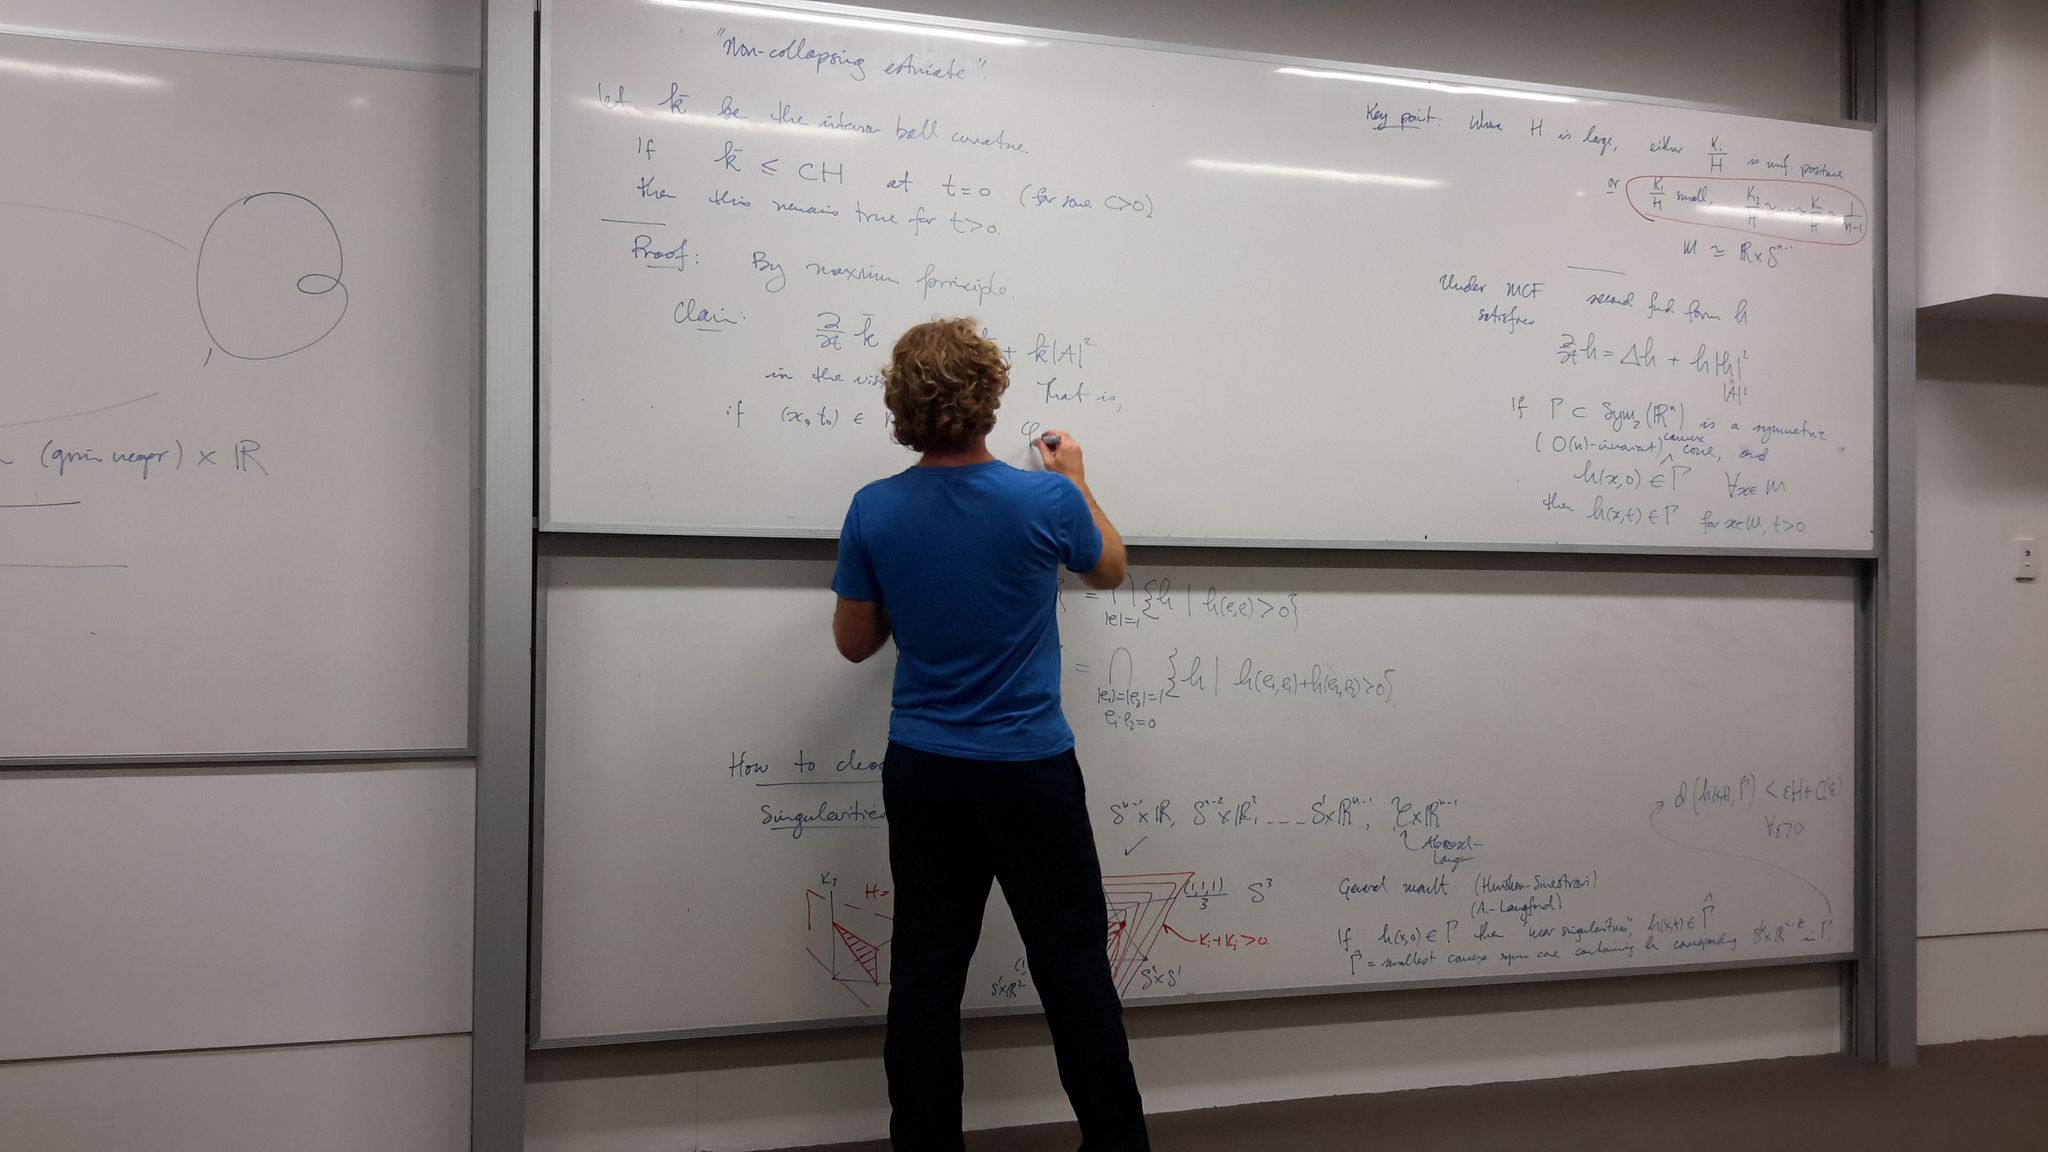 "Non-collapsing estimate".
Let k̄ be the interior ball curvature
If k̄ ≤ CH at t=0 (for some C>0)
then this remains true for t>0.
Proof: By maximum principle.
Claim: ∂/∂t k̄ + k̄|A|²
in the vis That is,
if (x₀, t₀) ∈ φ
Key point: Where H is large, either κ₁/H is unif. positive
or κ₁/H small, κ₂/H ~ ... ~ κ/H ~ 1/n-1
M ≃ ℝ×Sⁿ⁻¹
Under MCF second fund form h
satisfies
∂/∂t h = Δh + h|h|²
|A|²
If Γ ⊂ Sym₂(ℝⁿ) is a symmetric
(O(n)-invariant) convex cone, and
h(x,0) ∈ Γ ∀x∈M
then h(x,t) ∈ Γ for x∈M, t>0
(grim reaper) × ℝ
= ⋂ {h | h(e,e)>0}
|e|=1
= ⋂ {h | h(e₁,e₁)+h(e₂,e₂)>0}
|e₁|=|e₂|=1
e₁·e₂=0
How to
Singularities Sⁿ⁻¹×ℝ, Sⁿ⁻²×ℝ², ... S¹×ℝⁿ⁻¹, ×ℝⁿ⁻¹
✓ Abresch-
Langer
d(h(x,t), Γ̂) < εH+C(ε)
∀ε>0
κ₃ H=
(1,1,1)/3 S³
κᵢ+κⱼ>0
S¹×ℝ²
S¹×S¹
General result (Huisken-Sinestrari)
(A.-Langford)
If h(x,0)∈Γ then "near singularities", h(x,t)∈Γ̂
Γ̂ = smallest convex symm cone containing h corresponding in Γ.